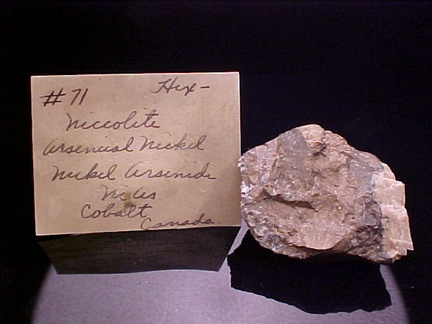 #71 Hex-
Niccolite
Arsenical Nickel
Nickel Arsenide
Ni As
Cobalt
Canada